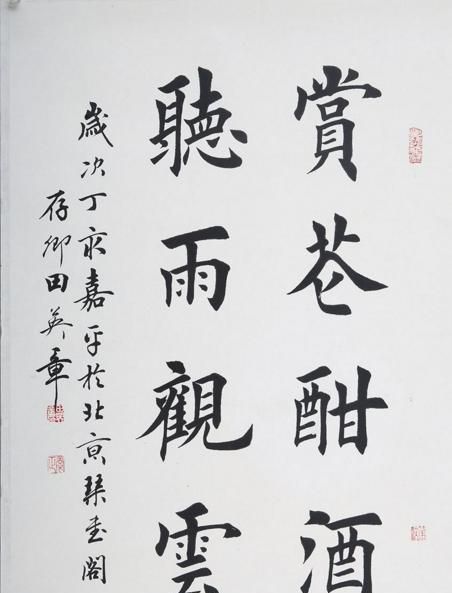 賞花酣酒
聽雨觀雲
歲次丁亥嘉平於北京琴書閣
存卿田英章